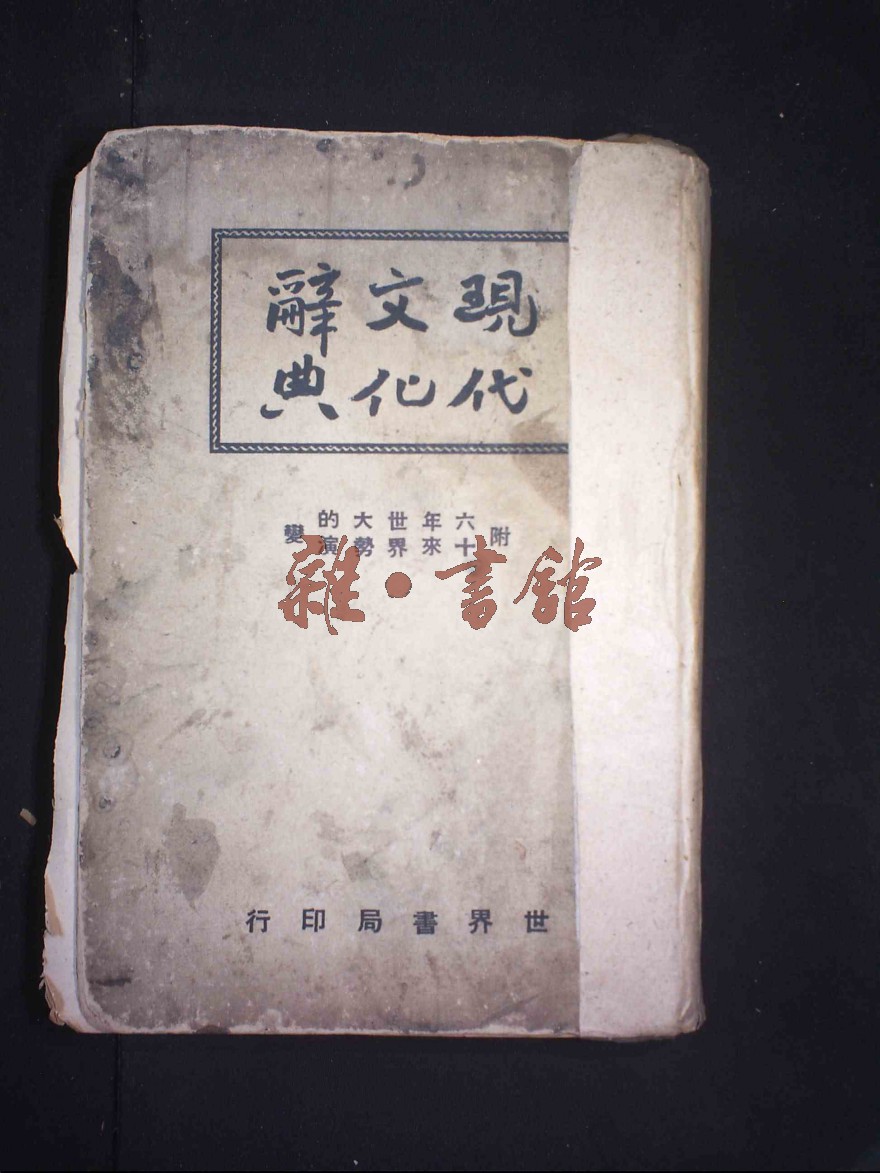 現代
文化
辭典
附六十年來世界大勢的演變
雜·書館
世界書局印行